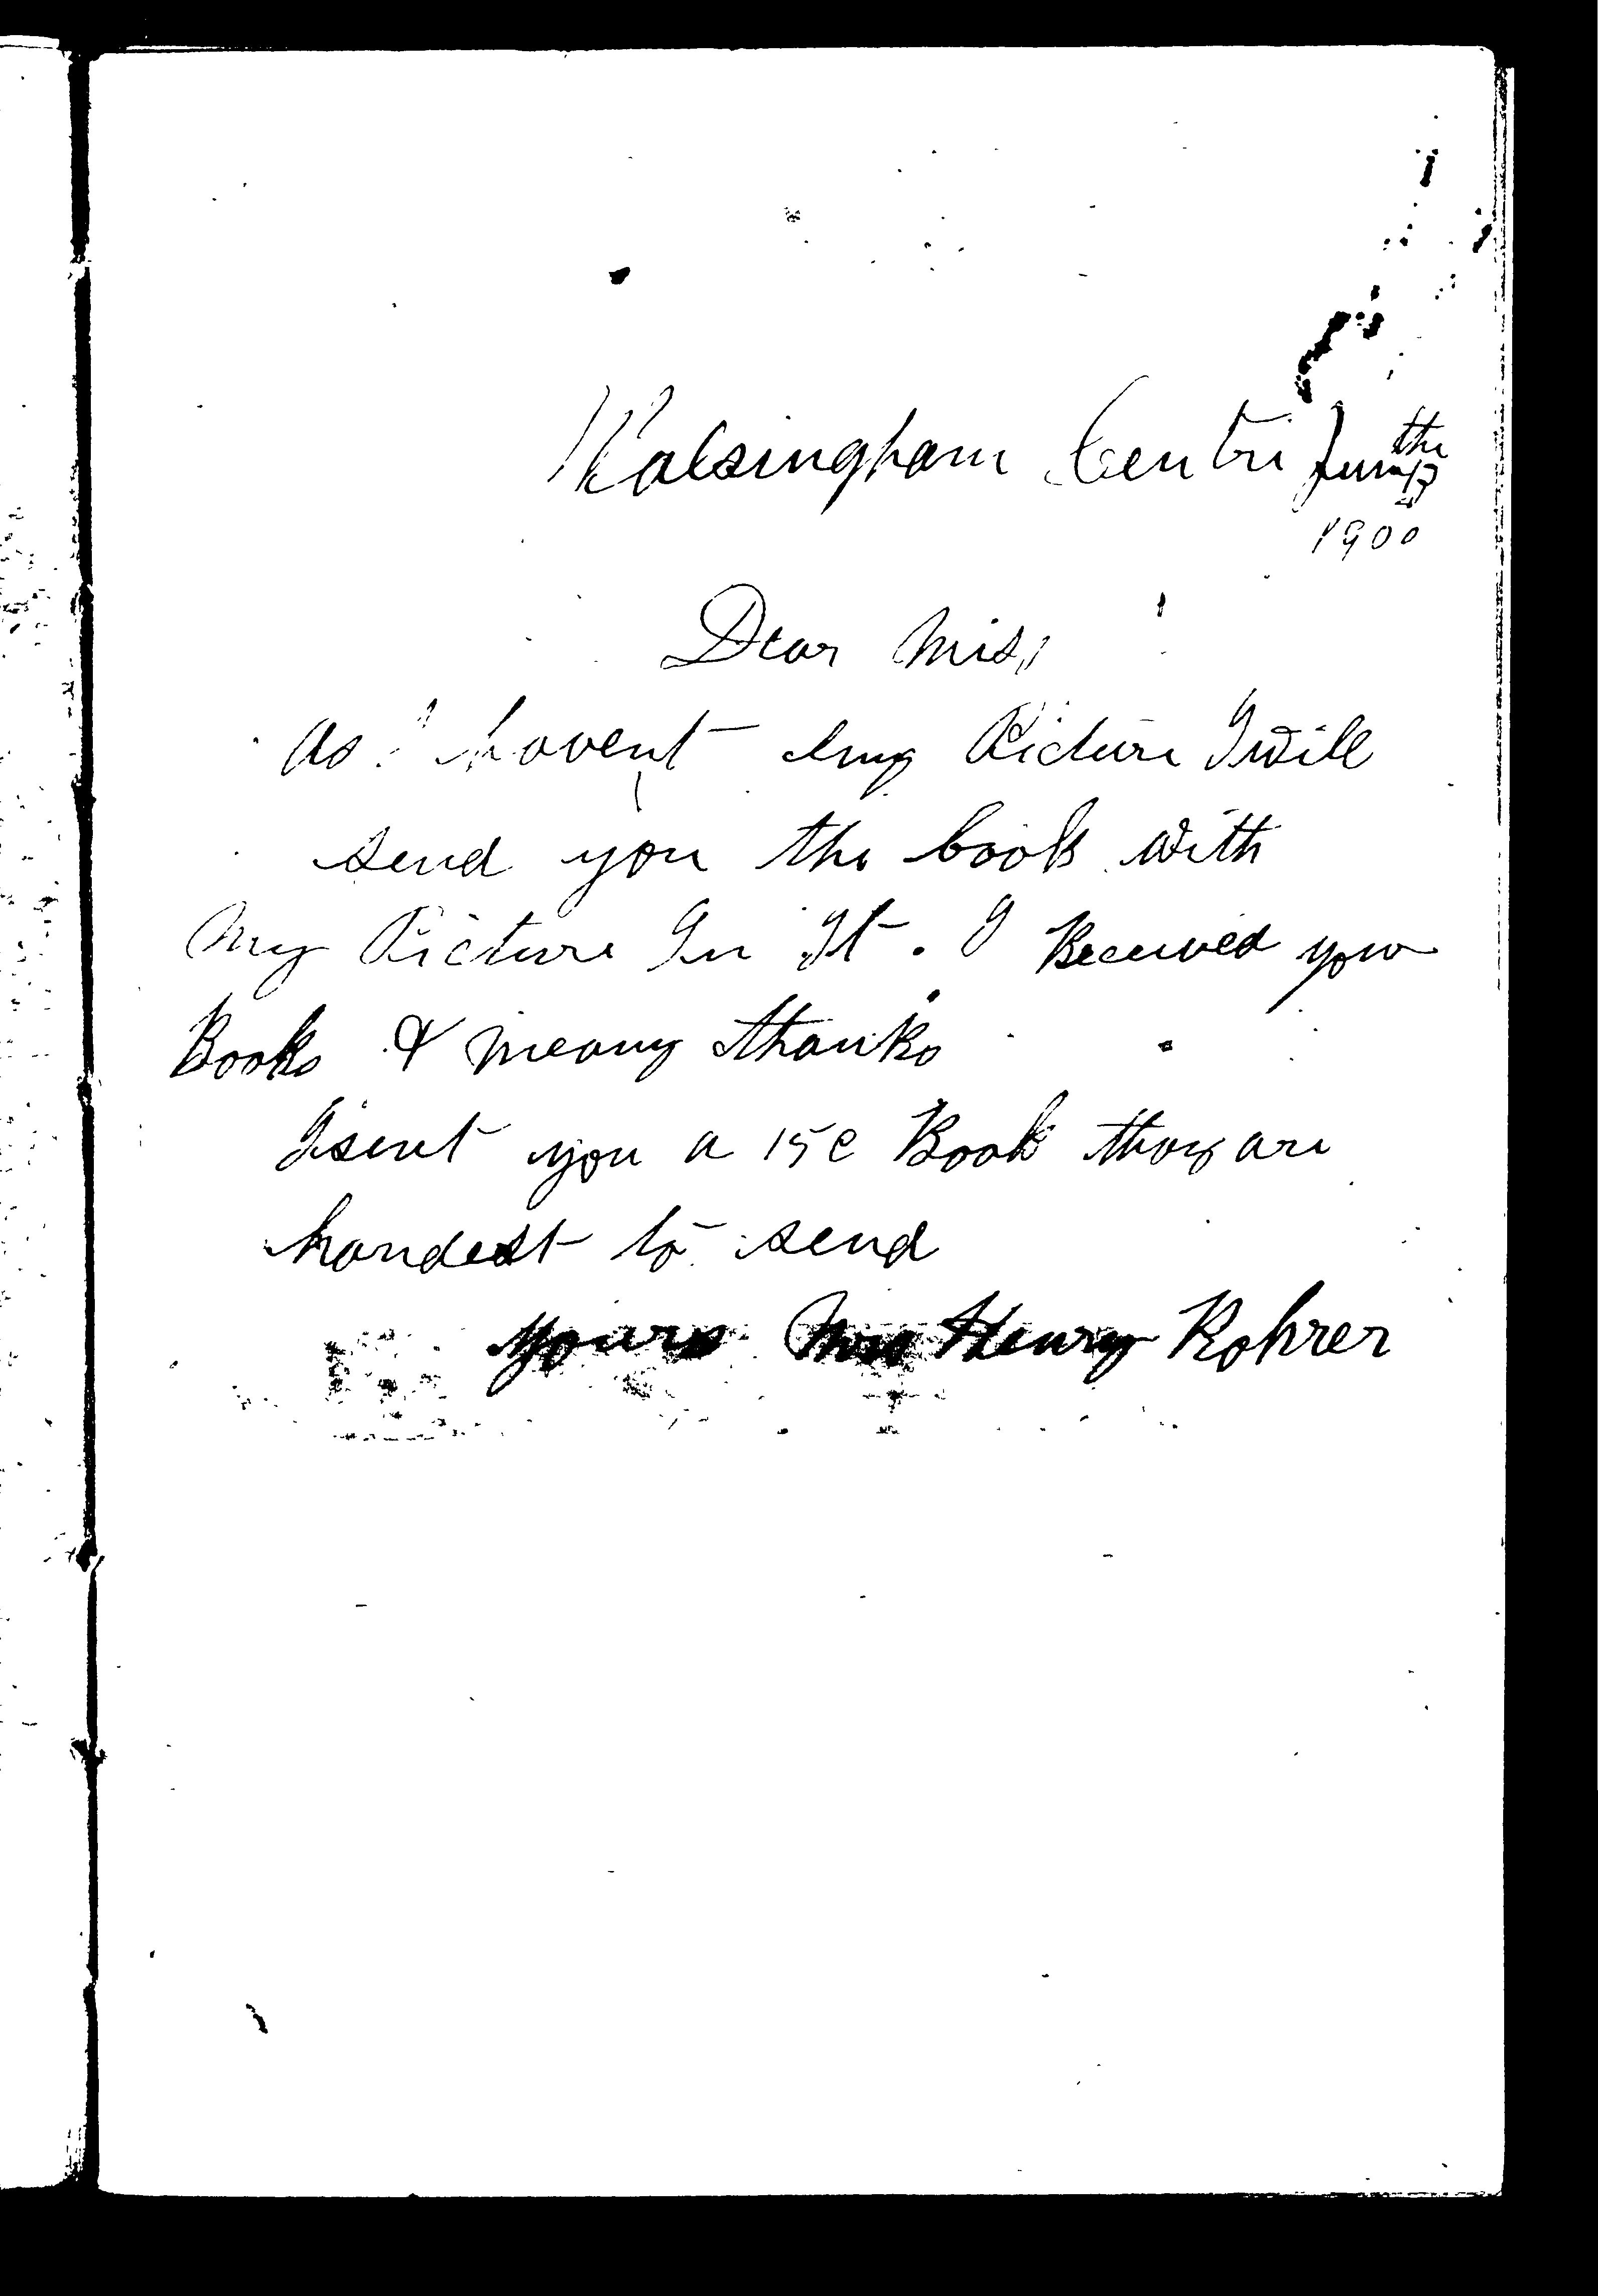 Walsingham Centre June the
1900
Dear Miss
As I havent eny Picture I will
send you the book with
My Picture In It. I Received your
Books & meany thanks
I sent you a 15c Book thay are
handest to send
Yours Mrs Henry Rohrer